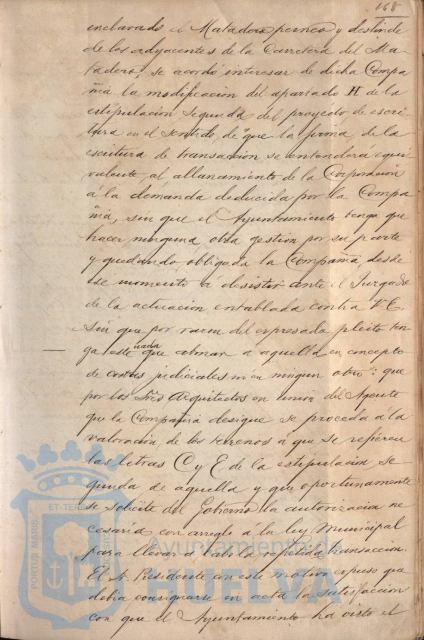 168
enclavado el Matadero perneo y deslinde
de los adyacentes de la Carretera del Ma-
tadero, se acordó interesar de dicha Compa-
ñía la modificacion del apartado H de la
estipulacion segunda del proyecto de escri-
tura en el sentido de que la firma de la
escritura de transaccion se entenderá equi
valente al allanamiento de la Corporacion
á la demanda deducida por la Compa-
ñia, sin que el Ayuntamiento tenga que
hacer ninguna otra gestion por su parte
y quedando obligada la Compañia desde
ese momento a desistir ante el Juzgado
de la actuacion entablada contra V.E.
sin que por razon del expresado pleito ten
ga este que abonar a aquella nada en concepto
de costas judiciales ni en ningun otro: que
por los Sres Arquitectos en union del Agente
que la Compañia designe se proceda a la
valoracion de los terrenos á que se refieren
las letras C y E de la estipulacion se
gunda de aquella y que oportunamente
se solicite del Gobierno la autorizacion ne
cesaria con arreglo á la ley Municipal
para llevar a cabo la transaccion.
El Sr. Presidente con este motivo expuso que
debia consignarse en acta la satisfaccion
con que el Ayuntamiento ha visto el
PORTUS MARIS ET TERRAE
Ayuntamiento de
HUELVA